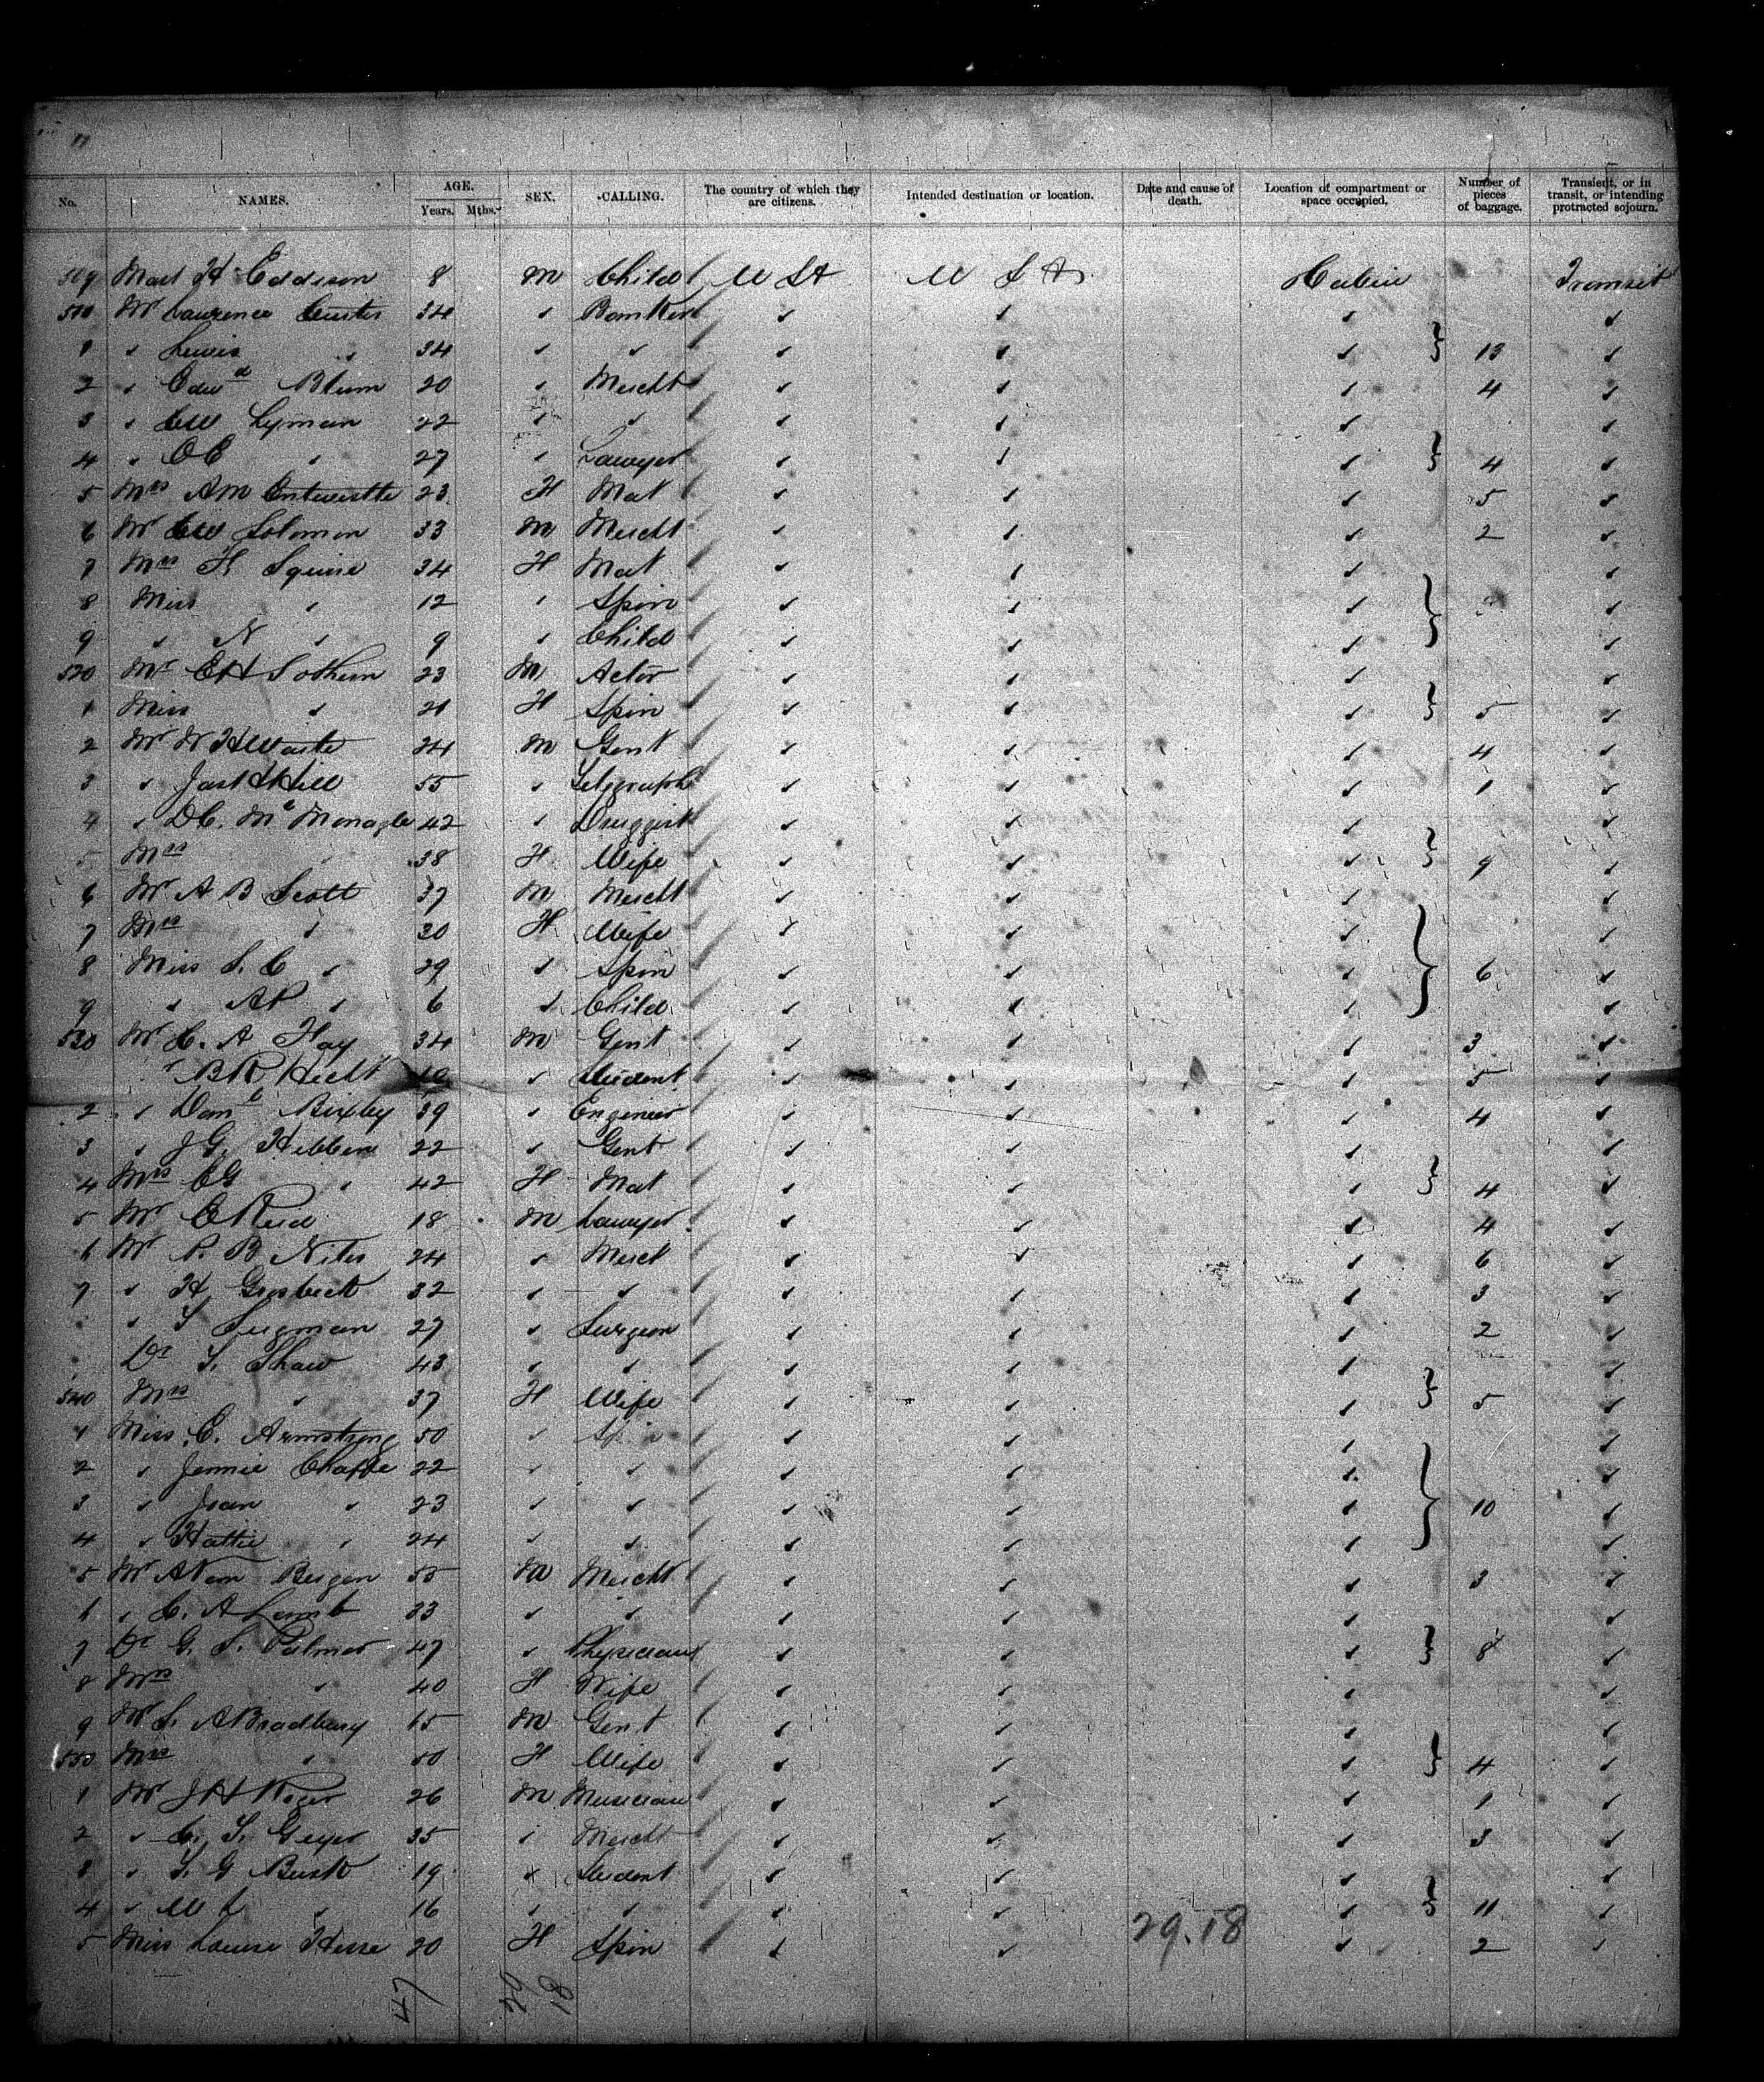 No. NAMES. AGE. Years. Mths. SEX. CALLING. The country of which they are citizens. Intended destination or location. Date and cause of death. Location of compartment or space occupied. Number of pieces of baggage. Transient, or in transit, or intending protracted sojourn.
509 Mast H Eddison 8 M Child U S A U S A Cabin Transit
510 Mr Laurence Curtis 34 ✓ Banker ✓ ✓ ✓ ✓
1 ✓ Lewis ✓ 34 ✓ ✓ ✓ ✓ ✓ } 13 ✓
2 ✓ Edwd Blum 20 ✓ Mercht ✓ ✓ ✓ 4 ✓
3 ✓ CW Lyman 22 ✓ ✓ ✓ ✓ ✓ ✓
4 ✓ OC ✓ 27 ✓ Lawyer ✓ ✓ ✓ } 4 ✓
5 Mrs AM Entwistle 23 F Mat ✓ ✓ ✓ 5 ✓
6 Mr CW Solomon 33 M Mercht ✓ ✓ ✓ 2 ✓
7 Mrs H Squire 34 F Mat ✓ ✓ ✓ ✓
8 Miss ✓ 12 ✓ Spin ✓ ✓ ✓ } ✓
9 ✓ N ✓ 9 ✓ Child ✓ ✓ ✓ ✓
520 Mr EH Sothern 23 M Actor ✓ ✓ ✓ ✓
1 Miss ✓ 21 F Spin ✓ ✓ ✓ } 5 ✓
2 Mr W H Waite 24 M Gent ✓ ✓ ✓ 4 ✓
3 ✓ Jas H Hill 55 ✓ Telegraph ✓ ✓ ✓ 1 ✓
4 ✓ DC. Mc Monagle 42 ✓ Druggist ✓ ✓ ✓ ✓
5 Mrs 38 F Wife ✓ ✓ ✓ } 9 ✓
6 Mr A B Scott 37 M Mercht ✓ ✓ ✓ ✓
7 Mrs ✓ 30 F Wife ✓ ✓ ✓ ✓
8 Miss S. C ✓ 29 ✓ Spin ✓ ✓ ✓ } 6 ✓
9 ✓ AP ✓ 6 ✓ Child ✓ ✓ ✓ ✓
530 Mr C. A Hay 34 M Gent ✓ ✓ ✓ 3 ✓
BR Hecht ✓ Student ✓ ✓ ✓ 5 ✓
2 ✓ Danl Bixby 39 ✓ Engineer ✓ ✓ ✓ 4 ✓
3 ✓ J G. Hibben 22 ✓ Gent ✓ ✓ ✓ ✓
4 Mrs CG ✓ 42 F Mat ✓ ✓ ✓ } 4 ✓
5 Mr C Reid 18 M Lawyer ✓ ✓ ✓ 4 ✓
6 Mr P. B Niles 24 ✓ Merct ✓ ✓ ✓ 6 ✓
7 ✓ H Grosbeck 32 ✓ ✓ ✓ ✓ ✓ 3 ✓
✓ S Sugman 27 ✓ Surgeon ✓ ✓ ✓ 2 ✓
Dr S. Shaw 43 ✓ ✓ ✓ ✓ ✓ ✓
540 Mrs ✓ 37 F Wife ✓ ✓ ✓ } 5 ✓
1 Miss C. Armstrong 50 ✓ Spin ✓ ✓ ✓ ✓
2 ✓ Jennie Chaffe 22 ✓ ✓ ✓ ✓ ✓ ✓
3 ✓ Jean ✓ 23 ✓ ✓ ✓ ✓ ✓ } 10 ✓
4 ✓ Hattie ✓ 24 ✓ ✓ ✓ ✓ ✓ ✓
5 Mr A Van Bergen 55 M Mercht ✓ ✓ ✓ 3 ✓
6 ✓ C. A Lamb 33 ✓ ✓ ✓ ✓ ✓ ✓
7 Dr G. S. Palmer 47 ✓ Physician ✓ ✓ ✓ } 8 ✓
8 Mrs ✓ 40 F Wife ✓ ✓ ✓ ✓
9 Mr S. A Bradbury 65 M Gent ✓ ✓ ✓ ✓
550 Mrs ✓ 50 F Wife ✓ ✓ ✓ } 4 ✓
1 Mr J H Roger 26 M Musician ✓ ✓ ✓ 1 ✓
2 ✓ C. S. Geyer 35 ✓ Mercht ✓ ✓ ✓ 3 ✓
3 ✓ S. G Busk 19 ✓ Student ✓ ✓ ✓ ✓
4 ✓ W L ✓ 16 ✓ ✓ ✓ ✓ ✓ } 11 ✓
5 Miss Louise Hesse 20 F Spin ✓ ✓ 29.18 ✓ 2 ✓
47